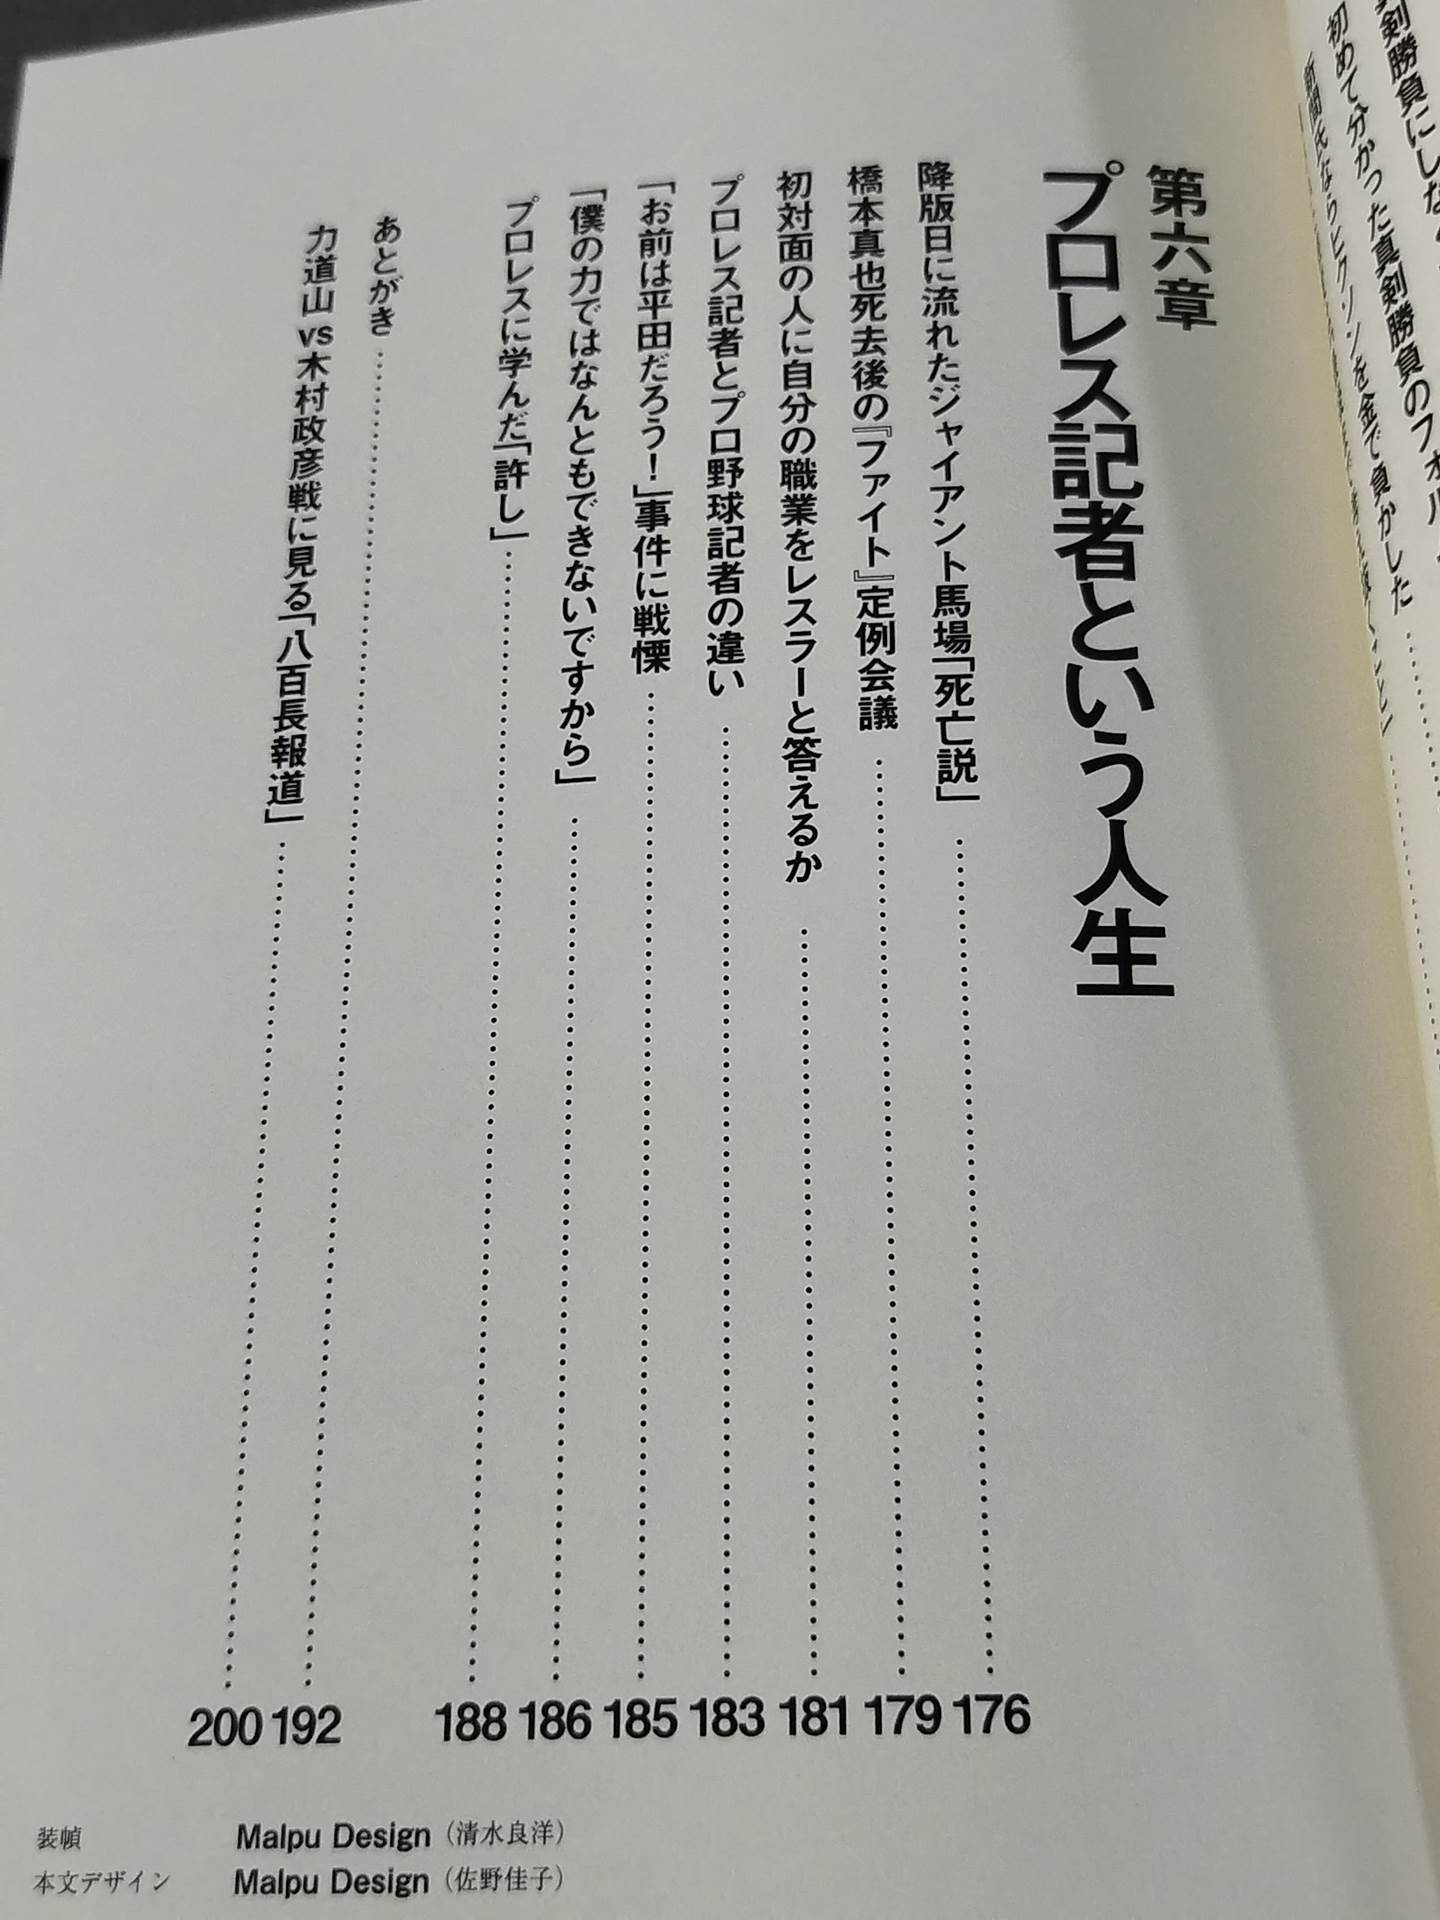 初めて分かった真剣勝負のフォ
第六章
プロレス記者という人生
降版日に流れたジャイアント馬場「死亡説」 176
橋本真也死去後の『ファイト』定例会議 179
初対面の人に自分の職業をレスラーと答えるか 181
プロレス記者とプロ野球記者の違い 183
「お前は平田だろう!」事件に戦慄 185
「僕の力ではなんともできないですから」 186
プロレスに学んだ「許し」 188
あとがき 192
力道山vs木村政彦戦に見る「八百長報道」 200
装幀 Malpu Design(清水良洋)
本文デザイン Malpu Design(佐野佳子)